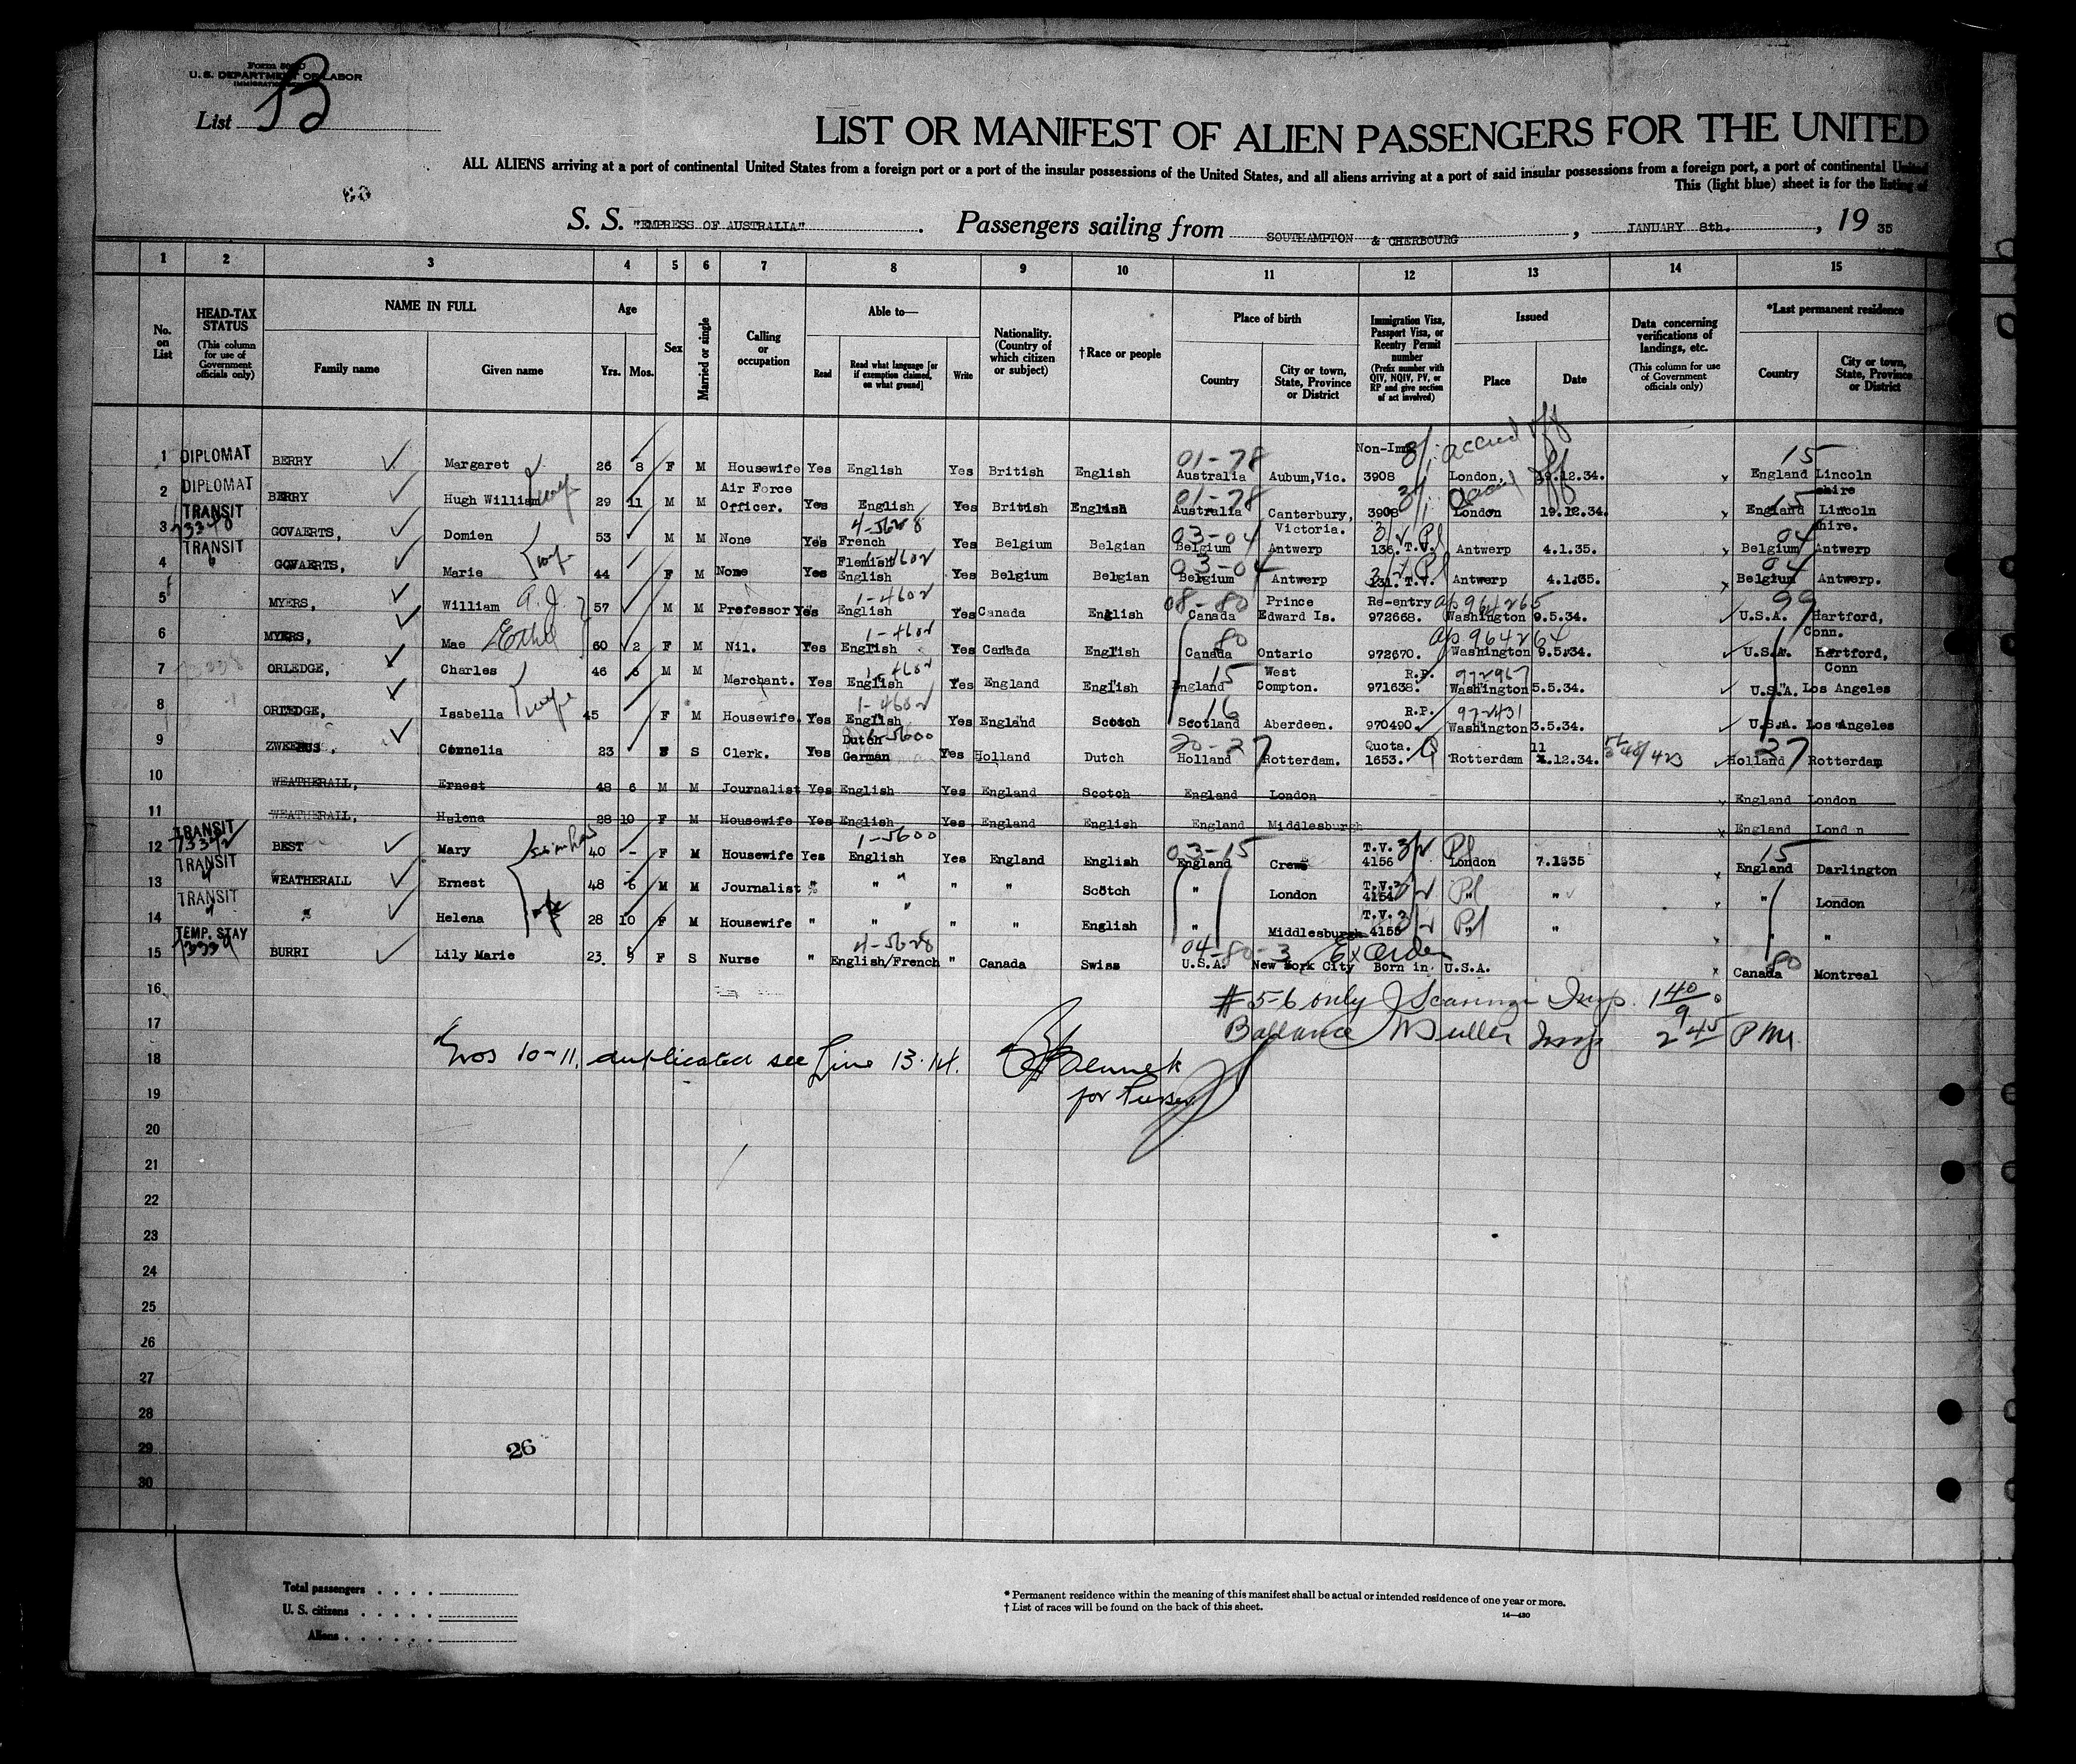 Form 500 D
U. S. DEPARTMENT OF LABOR
IMMIGRATION
List B
LIST OR MANIFEST OF ALIEN PASSENGERS FOR THE UNITED
ALL ALIENS arriving at a port of continental United States from a foreign port or a port of the insular possessions of the United States, and all aliens arriving at a port of said insular possessions from a foreign port, a port of continental United
This (light blue) sheet is for the listing of
60
S. S. "EMPRESS OF AUSTRALIA" . Passengers sailing from SOUTHAMPTON & CHERBOURG , JANUARY 8th. , 19 35
1 2 3 4 5 6 7 8 9 10 11 12 13 14 15
No. on List
HEAD-TAX STATUS (This column for use of Government officials only)
NAME IN FULL
Family name Given name
Age
Yrs. Mos.
Sex
Married or single
Calling or occupation
Able to—
Read Read what language [or if exemption claimed, on what ground] Write
Nationality. (Country of which citizen or subject)
†Race or people
Place of birth
Country City or town, State, Province or District
Immigration Visa, Passport Visa, or Reentry Permit number (Prefix number with QIV, NQIV, PV, or RP and give section of act involved)
Issued
Place Date
Data concerning verifications of landings, etc. (This column for use of Government officials only)
*Last permanent residence
Country City or town, State, Province or District
1 DIPLOMAT BERRY Margaret 26 8 F M Housewife Yes English Yes British English 01-78 Australia Auburn,Vic. Non-Imm 3908 London, 19.12.34. 15 England Lincoln shire
2 DIPLOMAT BERRY Hugh William 29 11 M M Air Force Officer. Yes English Yes British English 01-78 Australia Canterbury, Victoria. 3908 London 19.12.34. 15 England Lincoln shire.
3 TRANSIT GOVAERTS, Domien 53 M M None Yes 4-5628 French Yes Belgium Belgian 03-04 Belgium Antwerp 136. T.V. Antwerp 4.1.35. 04 Belgium Antwerp
4 TRANSIT GOVAERTS, Marie wife 44 F M None Yes Flemish English Yes Belgium Belgian 03-04 Belgium Antwerp 131. T.V. Antwerp 4.1.35. 04 Belgium Antwerp.
5 MYERS, William A.J. 57 M M Professor Yes 1-4602 English Yes Canada English 08-80 Canada Prince Edward Is. Re-entry 972668. 964265 Washington 9.5.34. 99 U.S.A. Hartford, Conn.
6 MYERS, Mae Ethel 60 2 F M Nil. Yes 1-4602 English Yes Canada English 80 Canada Ontario 972670. 964264 Washington 9.5.34. U.S.A. Hartford, Conn
7 ORLEDGE, Charles 46 6 M M Merchant. Yes 1-4602 English Yes England English 15 England West Compton. R.P. 971638. 972967 Washington 5.5.34. U.S.A. Los Angeles
8 ORLEDGE, Isabella wife 45 F M Housewife. Yes 1-4602 English Yes England Scotch 16 Scotland Aberdeen. R.P. 970490. 972431 Washington 3.5.34. U.S.A. Los Angeles
9 Cornelia 23 F S Clerk. Yes Dutch German Yes Holland Dutch 20-27 Holland Rotterdam. Quota. 1653. Q Rotterdam 11.12.34. 27 Holland Rotterdam
10 WEATHERALL, Ernest 48 6 M M Journalist Yes English Yes England Scotch England London England London
11 WEATHERALL, Helena 28 10 F M Housewife Yes English Yes England English England Middlesburgh England London
12 TRANSIT BEST Mary 40 - F M Housewife Yes 1-5600 English Yes England English 03-15 England Crewe T.V. 4156 London 7.1935 15 England Darlington
13 TRANSIT WEATHERALL Ernest 48 6 M M Journalist " " " " Scotch " London T.V. 4154 " " " London
14 TRANSIT " Helena wife 28 10 F M Housewife " " " " English " Middlesburgh T.V. 4155 " " " "
15 TEMP. STAY BURRI Lily Marie 23 9 F S Nurse " 4-5628 English/French " Canada Swiss 04-80-3 U.S.A. New York City Born in U.S.A. 80 Canada Montreal
16 #5-6 only Insp. 1 40
17 Ballance Insp 2 45 PM
18 Nos 10-11, duplicated see Line 13.14.
for Purser
19
20
21
22
23
24
25
26
27
28
29
30
26
Total passengers . . . .
U. S. citizens . . . . .
Aliens . . . . . .
* Permanent residence within the meaning of this manifest shall be actual or intended residence of one year or more.
† List of races will be found on the back of this sheet.
14—430